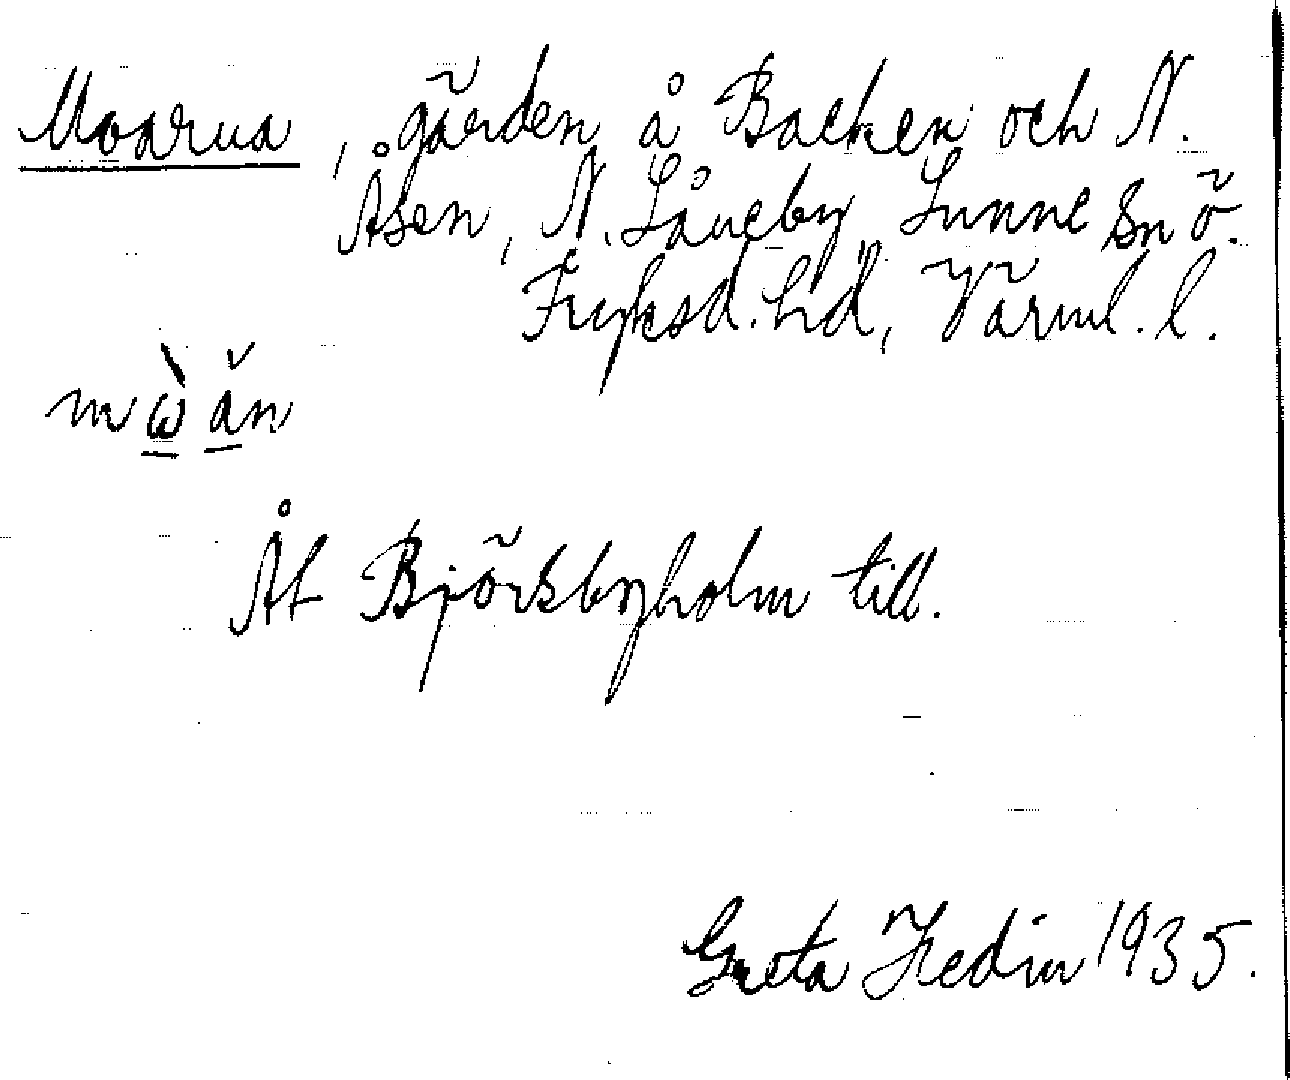 Moarna, gärden å Backen och N.
Åsen, N. Låneby Sunne sn Ö.
Fryksd. hd, Värml. l.
mὼ ăn
Åt Björkbyholm till.
Greta Hedin 1935.